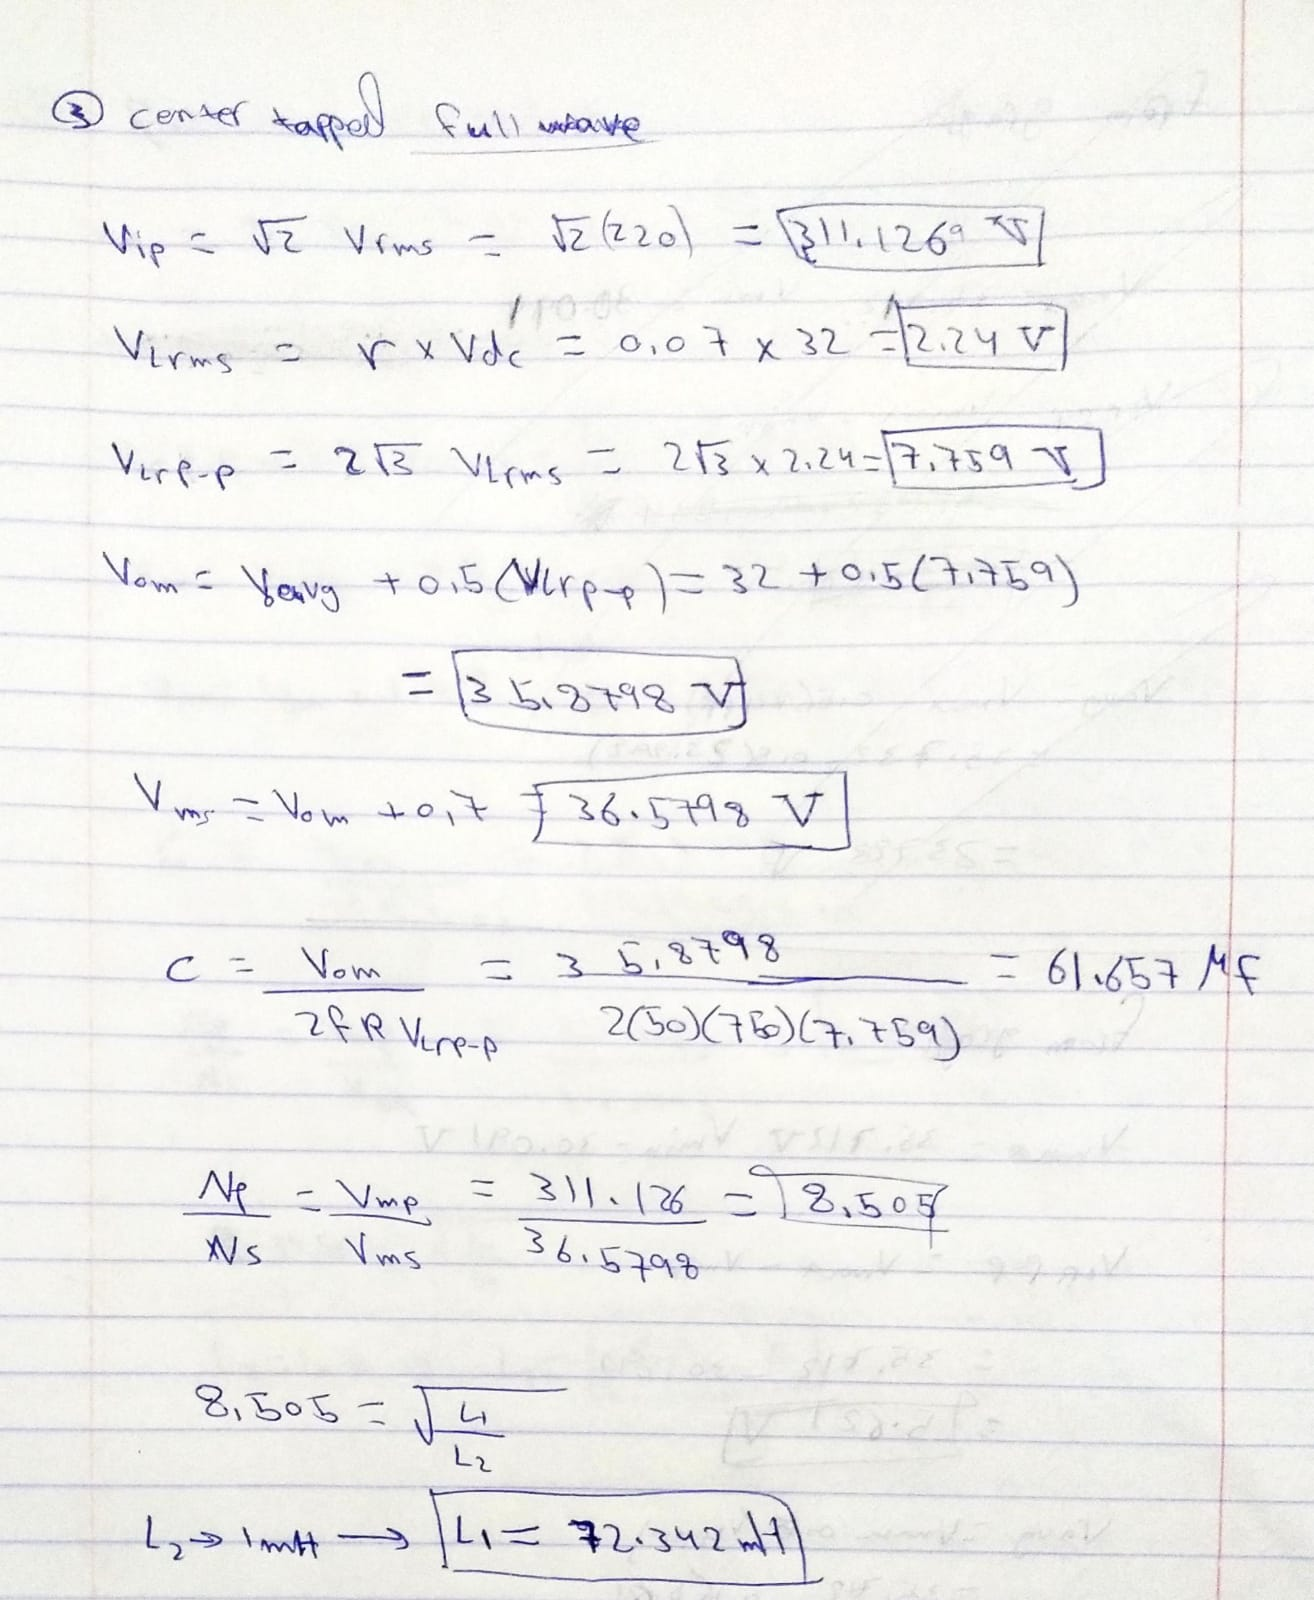 ③ center tapped full wave
Vip = √2 Vrms = √2 (220) = 311.1269 V
VLrms = r × Vdc = 0.07 × 32 = 2.24 V
VLrp-p = 2√3 VLrms = 2√3 × 2.24 = 7.759 V
Vom = Vavg + 0.5 (VLrp-p) = 32 + 0.5 (7.759)
= 35.8798 V
Vms = Vom + 0.7 = 36.5798 V
C = Vom / 2fR VLrp-p = 35.8798 / 2(50)(750)(7.759) = 61.657 μF
Np / Ns = Vmp / Vms = 311.126 / 36.5798 = 8.505
8.505 = √ L1 / L2
L2 → 1mH → L1 = 72.342 mH